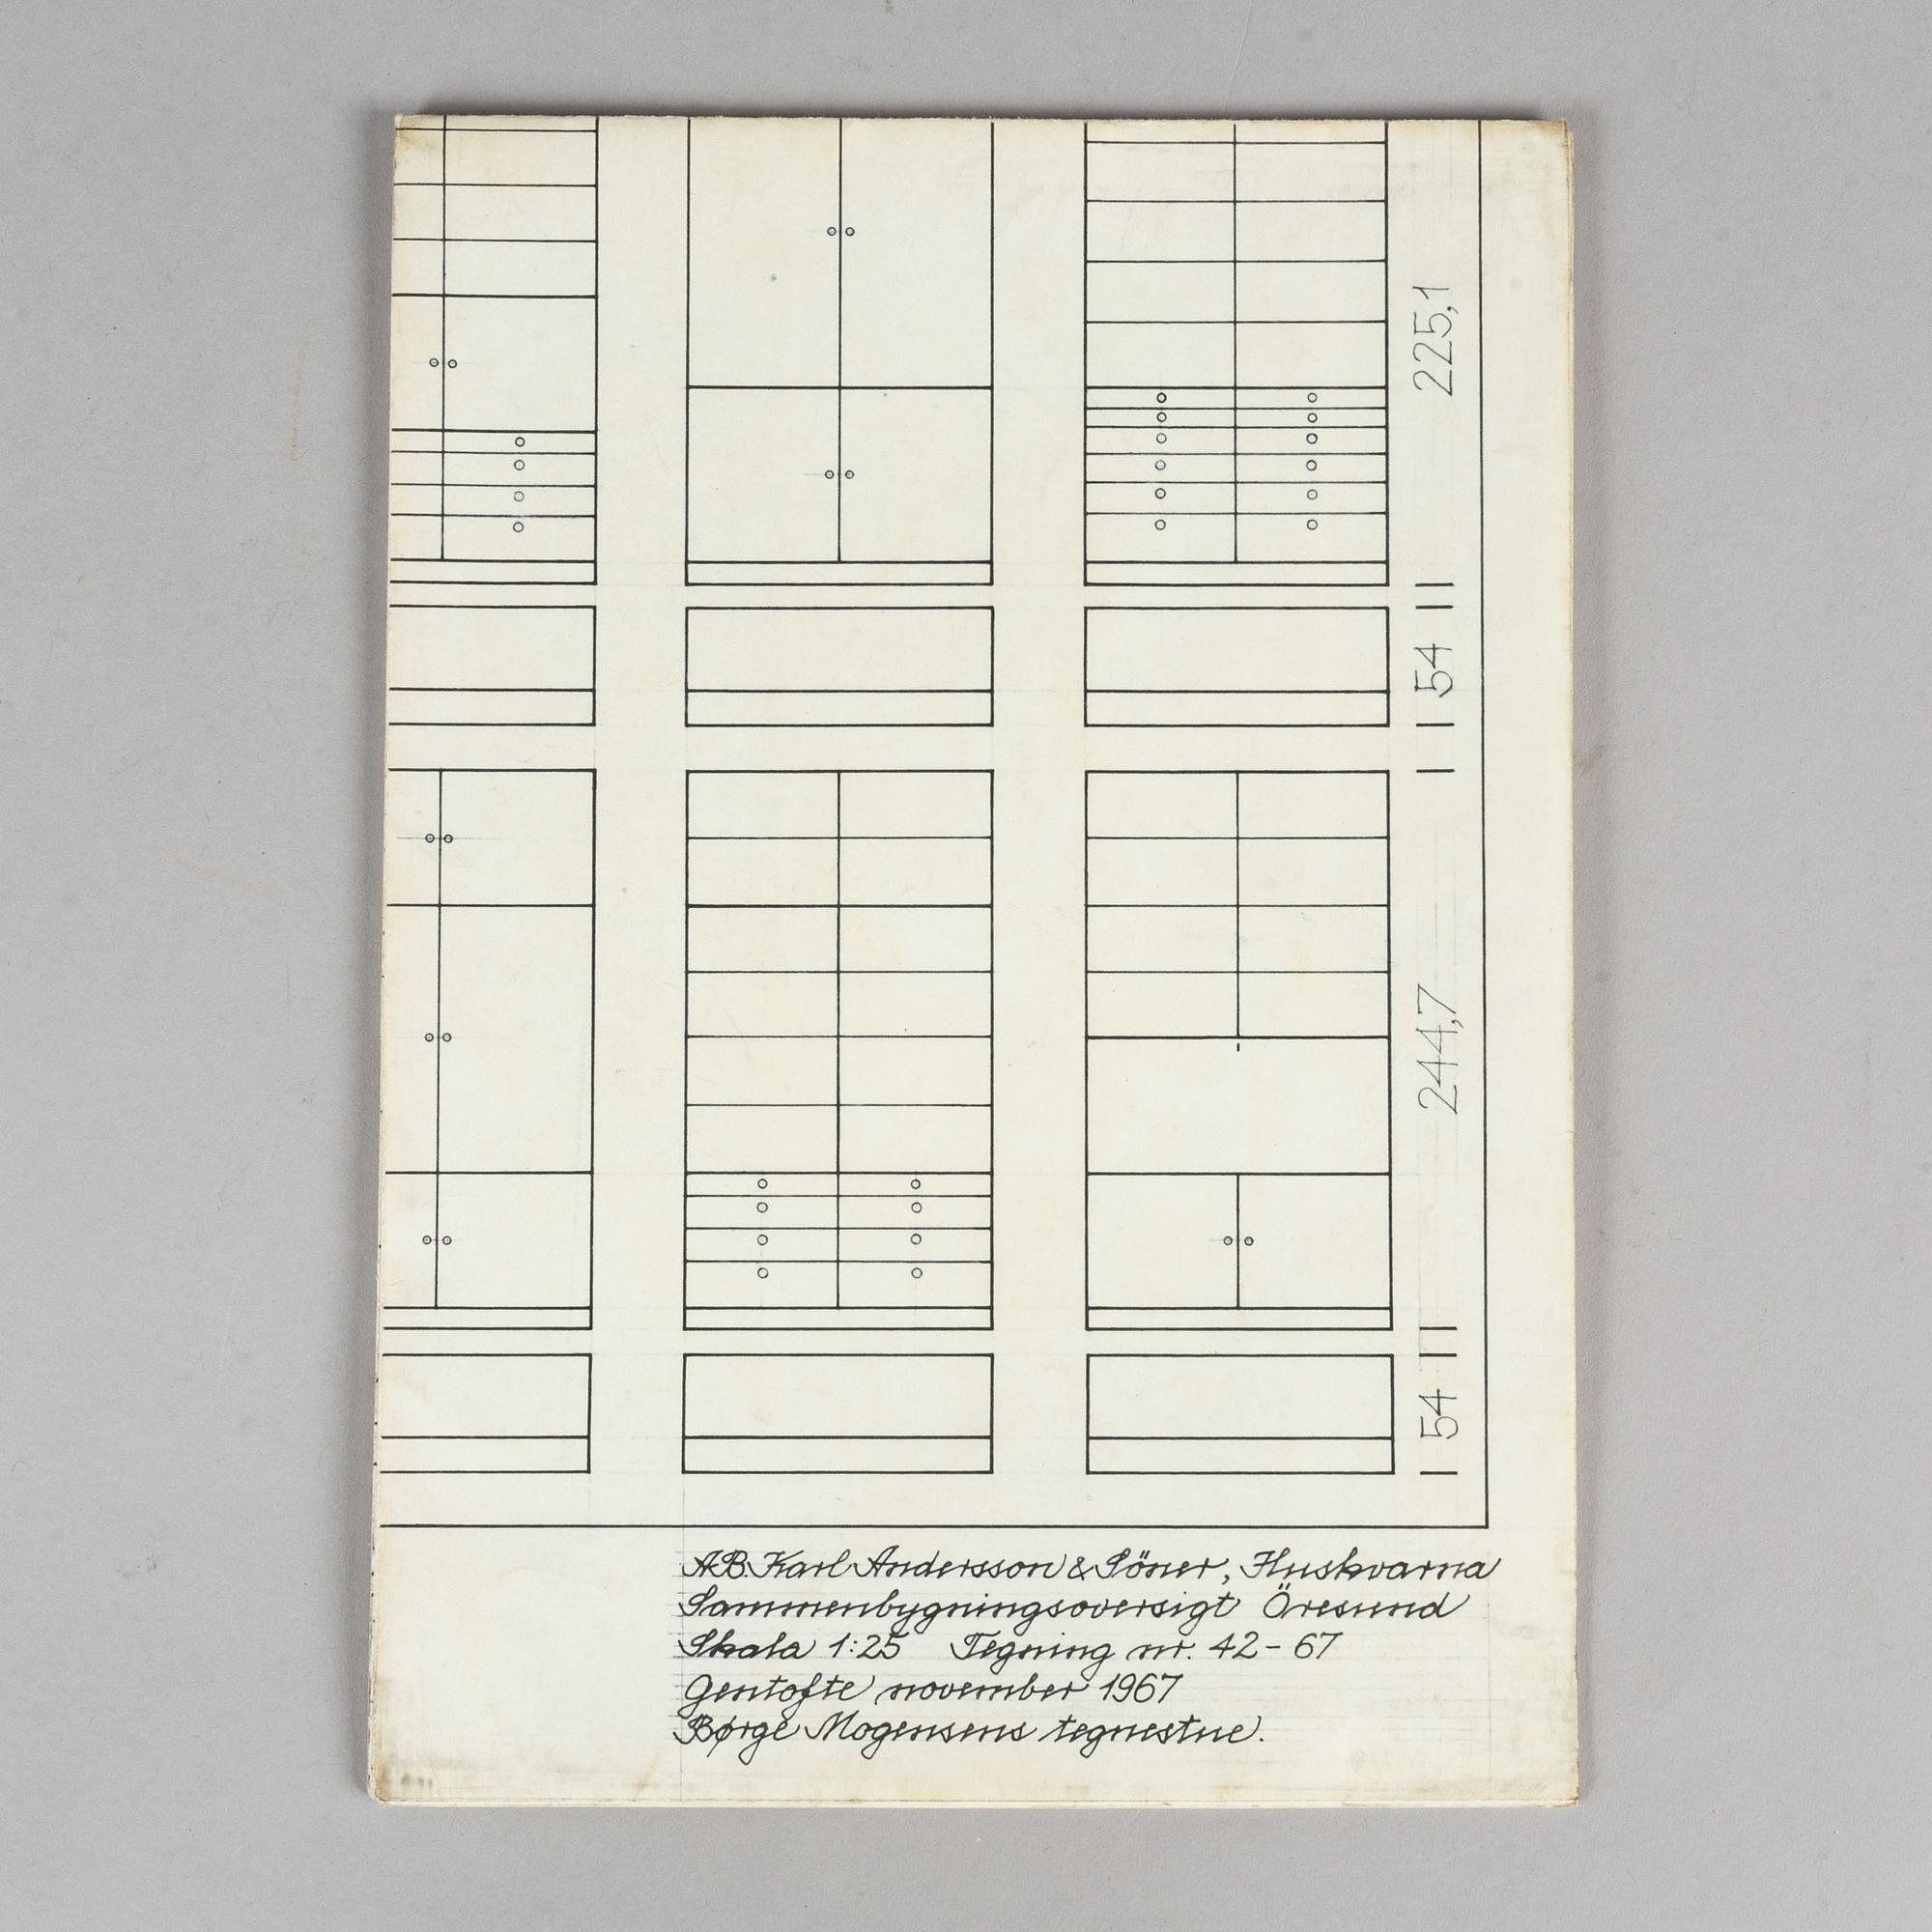 225,1
54
244,7
54
AB. Karl Andersson & Söner, Huskvarna
Sammenbygningsoversigt Öresund
Skala 1:25 Tegning nr. 42-67
Gentofte november 1967
Børge Mogensens tegnestue.